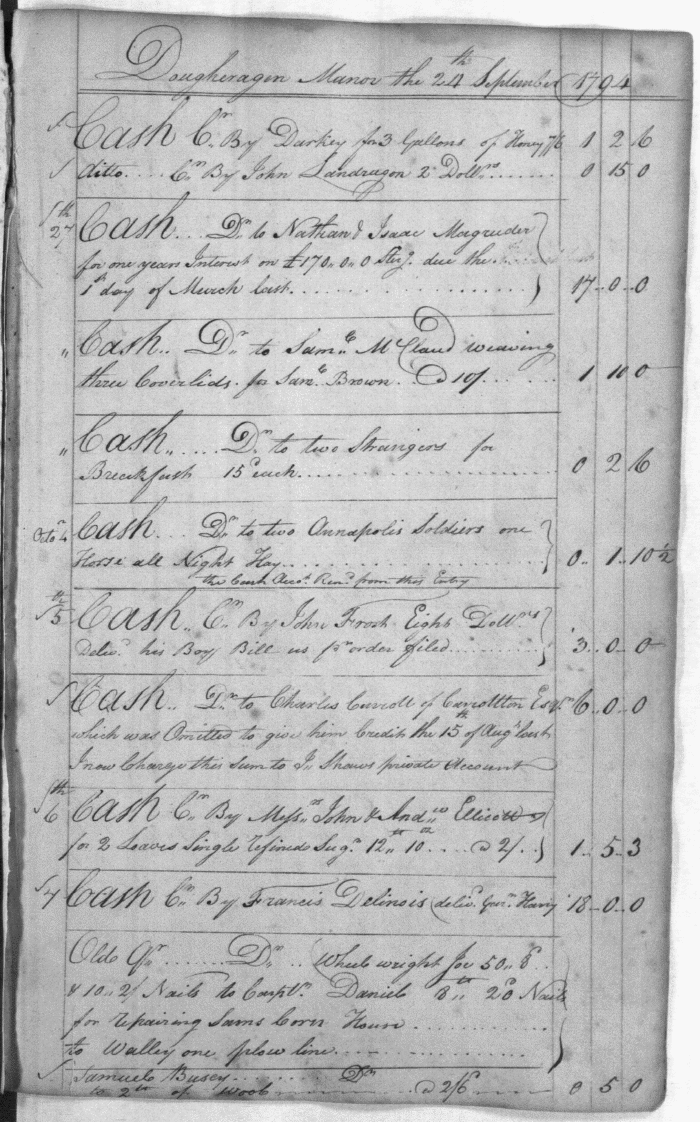 Dougheragen Manor the 24th September 1794
Cash Cr. By Darkey for 3 Gallons of Honey 7/6 1 2 6
ditto.... Cr. By John Landragon 2 Dollrs....... 0 15 0
27th Cash... Dr. to Nathan & Isaac Magruder
for one years Interest on £170..0..0 Sterg. due the
1st day of March last............... 17..0..0
" Cash.. Dr. to Saml. McClaud weaving
three Coverlids for Saml. Brown. @ 10/...... 1 10 0
" Cash...... Dr. to two Strangers for
Breakfast 15d each................ 0 2 6
Octor. 4 Cash... Dr. to two Annapolis Soldiers one
Horse all Night Hay............... 0.. 1.. 10 1/2
the Cash Acct. from this Entry
5th Cash.. Cr. By John Frost Eight Dollrs
deliv. his Boy Bill as pr. order filed.......... 3.. 0.. 0
Cash.. Dr. to Charles Carroll of Carrollton Esqr. 6..0..0
which was Omitted to give him Credit the 15th of Augt. last
I now Charge this Sum to J. Shaws private Account
6th Cash Cr. By Messrs. John & Andw. Ellicott
for 2 Loaves Single refined Sugr. 12lb.. 10oz.... @ 2/.. 1.. 5.. 3
Cash Cr. By Francis Delinois deliv. Harry 18..0..0
Old Qr........ Dr... Wheelwright for 50.. 8d..
& 10.. 2/ Nails to Carptr. Daniel 8lb.. 20d Nails
for repairing Sams Corn House............
to Walley one plow line.................
Samuel Busey........... Dr.
to 2lb of Wool............ @ 2/6..... 0 5 0